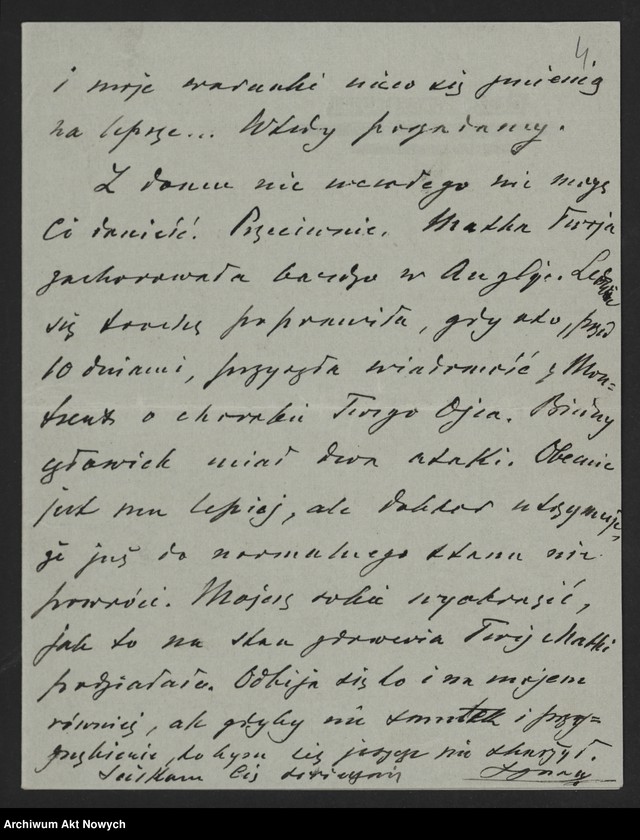 4
i moje warunki nieco się zmienią
na lepsze... Wtedy pogadamy.
Z domu nic wesołego nie mogę
Ci donieść. Przeciwnie. Matka Twoja
zachorowała bardzo w Anglji. Ledwie
się trochę poprawiła, gdy oto, przed
10 dniami, przyszła wiadomość z Mon=
treux o chorobie Twego Ojca. Biedny
człowiek miał dwa ataki. Obecnie
jest mu lepiej, ale doktor utrzymuje,
że już do normalnego stanu nie
powróci. Możesz sobie wyobrazić,
jak to na stan zdrowia Twej Matki
podziałało. Odbija się to i na mojem
również, ale gdyby nie smutek i przy=
gnębienie, to bym się jeszcze nie skarżył.
Ściskam Cię serdecznie
Archiwum Akt Nowych